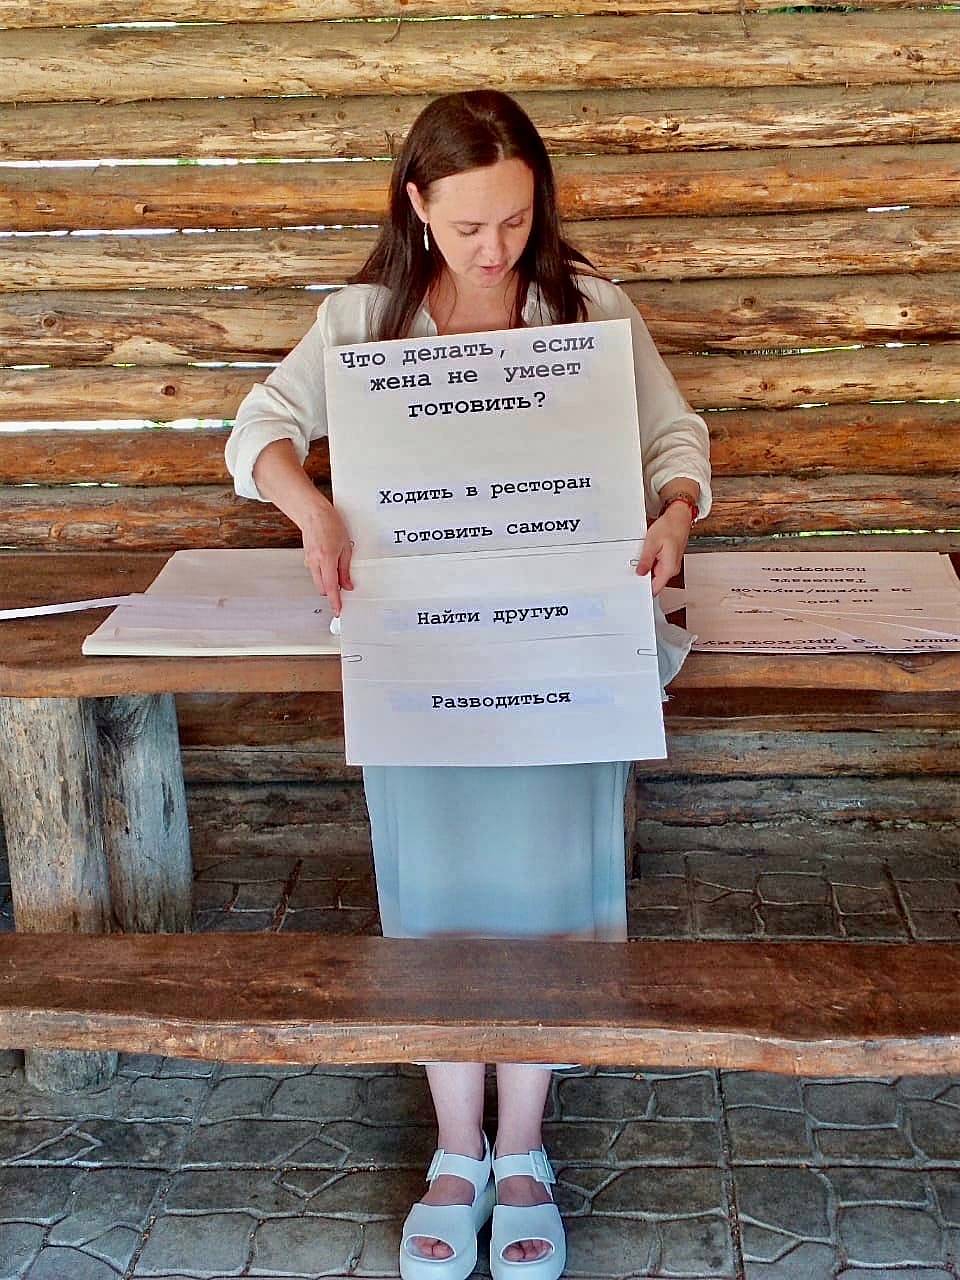 Что делать, если
жена не умеет
готовить?
Ходить в ресторан
Готовить самому
Найти другую
Разводиться
Посмотреть
Танцевать
За внучка/внучкой